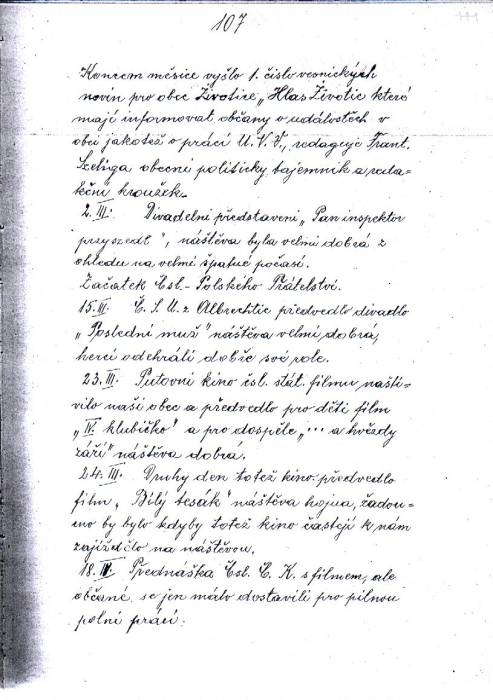 107
Koncem měsíce vyšlo 1. číslo vesnických
novin pro obec Životice „Hlas Životic které
mají informovat občany o událostech v
obci jakotež o práci M.N.V., redaguje Frant.
Szeliga obecní politicky tajemnik a reda-
kční kroužek.
2. III. Divadelní představení „Pan inspektor
przyszedł", náštěva byla velmi dobrá z
ohledu na velmi špatné počasí.
Začátek Čsl.- Polského Přátelství.
15. III. Č. S. M. z Albrechtic předvedlo divadlo
„Poslední muž" náštěva velmi dobrá,
herci odehráli dobře své role.
23. III. Putovní kino čsl. stát. filmu naští-
vilo naši obec a předvedlo pro děti film
„IV. klubíčko" a pro dospělé „... a hvězdy
září" náštěva dobrá.
24. III. Druhy den totéž kino předvedlo
film „Bílý tesák" náštěva hojna, žádou-
cno by bylo kdyby totéž kino častěji k nám
zajíždělo na náštěvou.
18. IV. Přednáška Čsl. Č. K. s filmem, ale
občané se jen málo dostavili pro pilnou
polní práci.